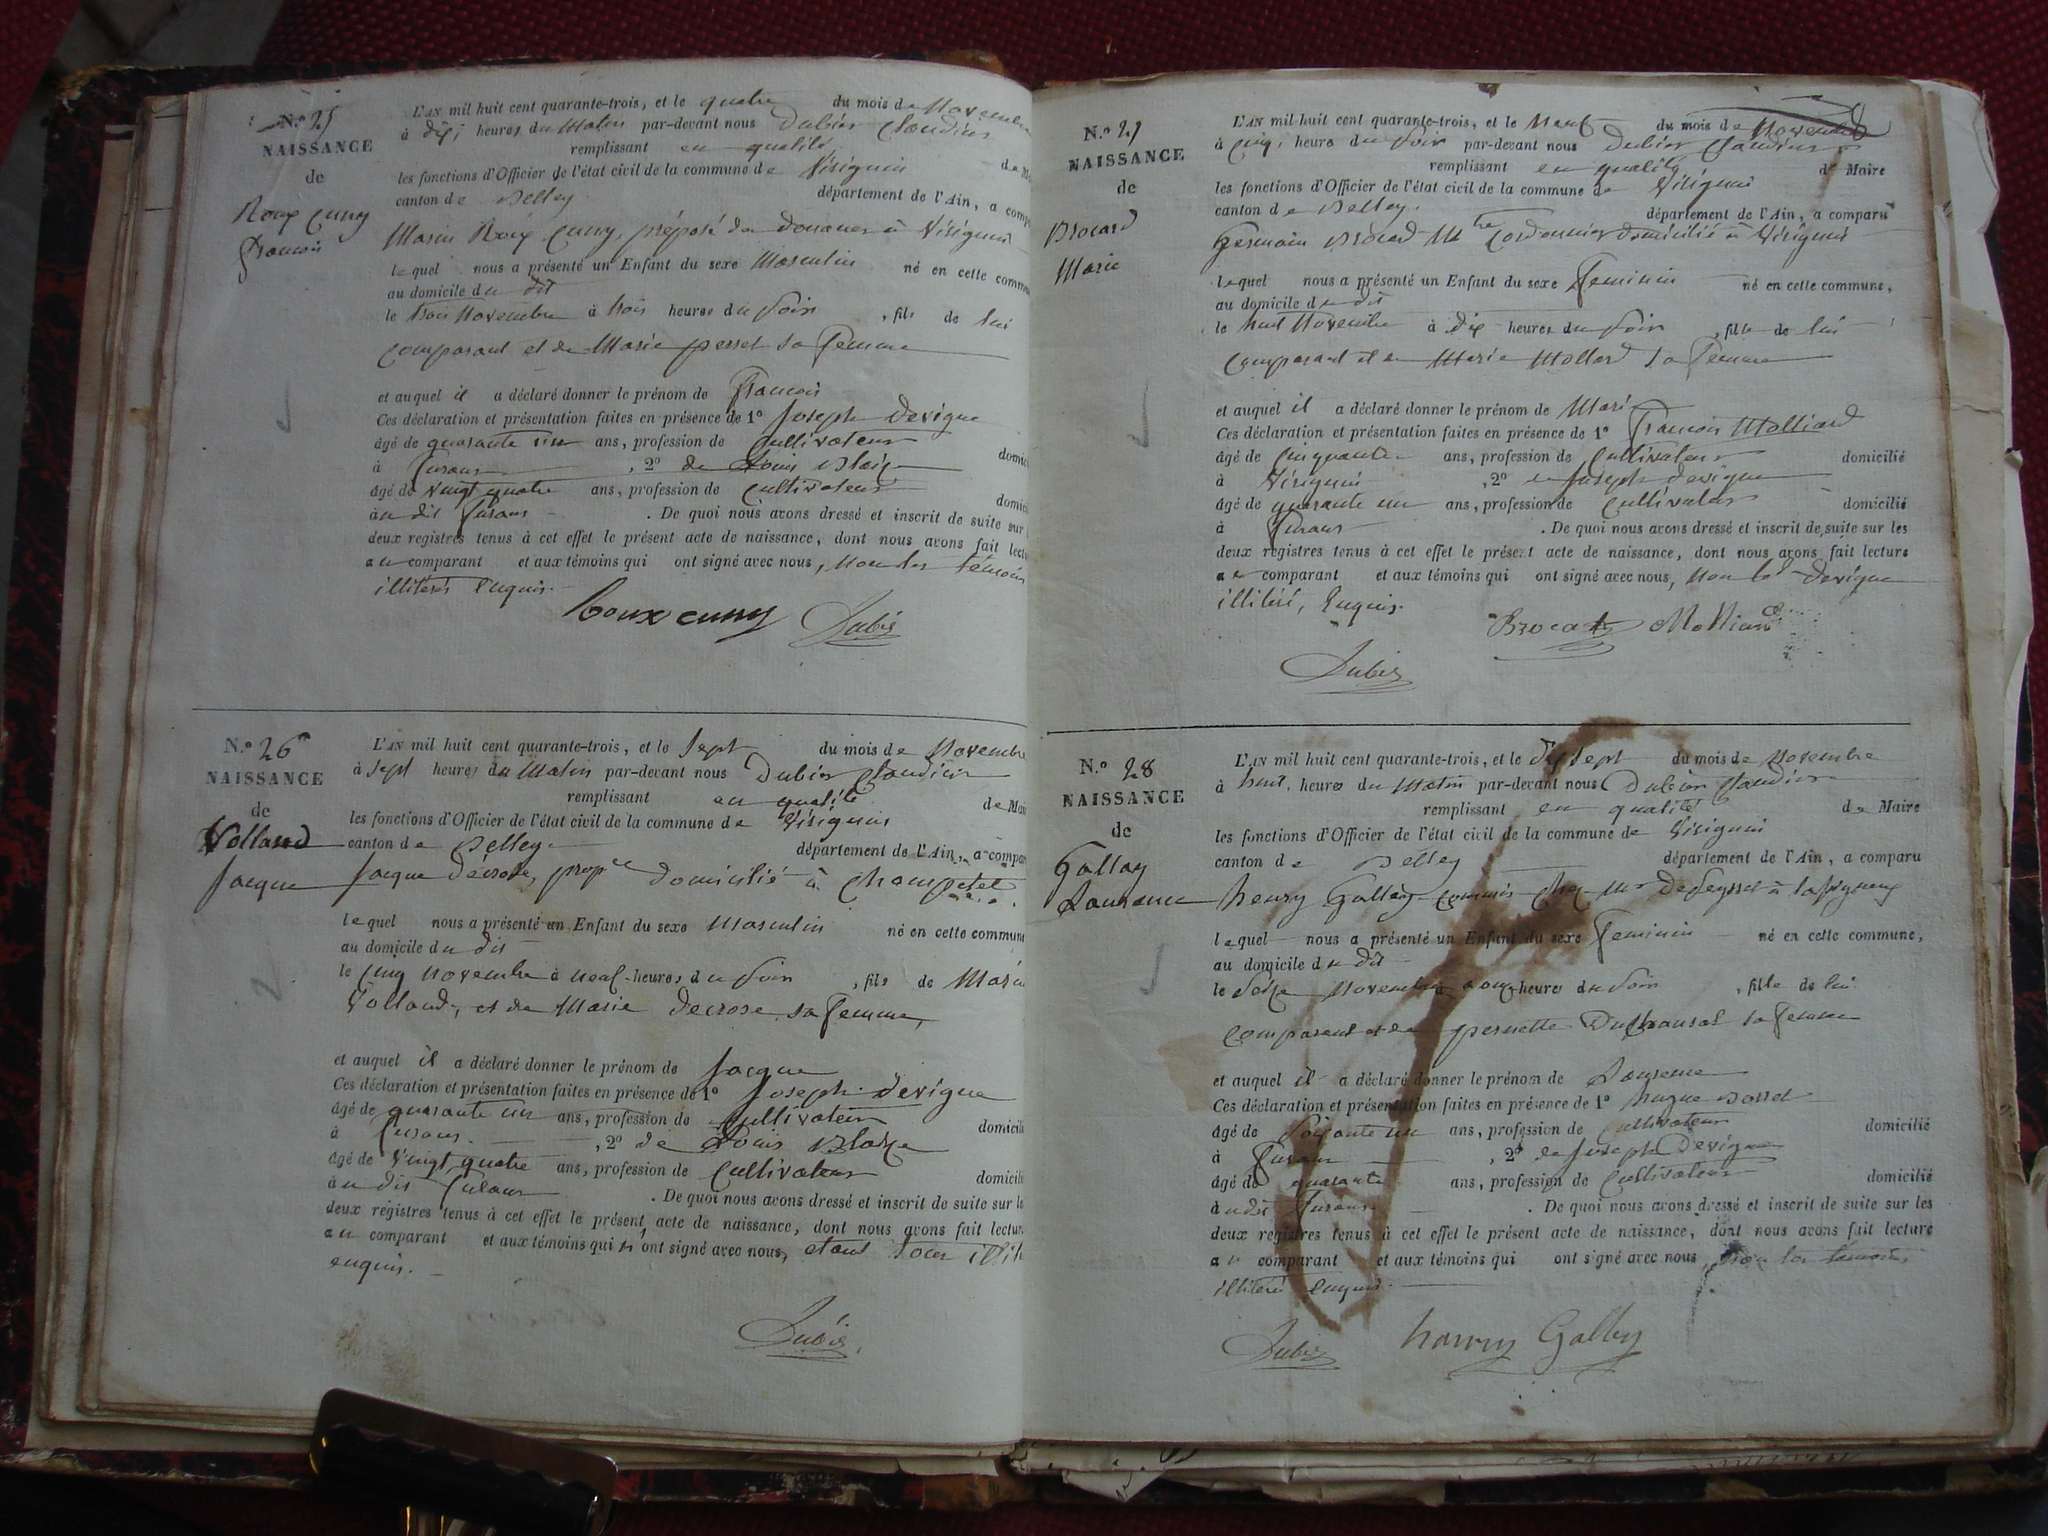 N.º 25
NAISSANCE
de
Roux Cuny
François
L'AN mil huit cent quarante-trois, et le quatre du mois de Novembre
à dix, heures du Matin par-devant nous Dubier Claudius
remplissant en qualité
les fonctions d'Officier de l'état civil de la commune de Virignin
canton de Belley département de l'Ain, a
Marin Roux Cuny, préposé des Douanes à Virignin
lequel nous a présenté un Enfant du sexe Masculin né en cette
au domicile du dit
le trois Novembre à trois heures du Soir, fils de lui
comparant et de Marie perret sa femme
et auquel il a déclaré donner le prénom de François
Ces déclaration et présentation faites en présence de 1º Joseph Devigne
âgé de quarante un ans, profession de Cultivateur
à , 2º de Louis Blaize
âgé de vingt quatre ans, profession de Cultivateur
au dit . De quoi nous avons dressé et inscrit de suite sur
deux registres tenus à cet effet le présent acte de naissance, dont nous avons fait
au comparant et aux témoins qui ont signé avec nous, non les témoins
illitérés Enquis.
Roux cuny Dubier
N.º 26
NAISSANCE
de
Volland
Jacque
L'AN mil huit cent quarante-trois, et le Sept du mois de Novembre
à Sept heures du Matin par-devant nous Dubier Claudius
remplissant en qualité de
les fonctions d'Officier de l'état civil de la commune de Virignin
canton de Belley département de l'Ain, a
Jacque Décrose, propre domicilié à
lequel nous a présenté un Enfant du sexe Masculin né en cette commune
au domicile du dit
le Cinq Novembre à neuf heures du Soir, fils de
Volland, et de Marie Decrose sa femme,
et auquel il a déclaré donner le prénom de Jacque
Ces déclaration et présentation faites en présence de 1º Joseph Devigne
âgé de quarante un ans, profession de Cultivateur
à , 2º de Louis Blaize
âgé de vingt quatre ans, profession de Cultivateur
au dit . De quoi nous avons dressé et inscrit de suite sur
deux registres tenus à cet effet le présent acte de naissance, dont nous avons fait
au comparant et aux témoins qui n'ont signé avec nous, étant tous
enquis.
Dubier
N.º 27
NAISSANCE
de
Brocard
Marie
L'AN mil huit cent quarante-trois, et le Neuf du mois de Novembre
à Cinq, heures du Soir par-devant nous Dubier Claudius
remplissant en qualité de Maire
les fonctions d'Officier de l'état civil de la commune de Virignin
canton de Belley. département de l'Ain, a comparu
Germain Brocard Mtre Cordonnier domicilié à Virignin
lequel nous a présenté un Enfant du sexe Feminin né en cette commune,
au domicile du dit
le huit Novembre à dix heures du Soir, fille de lui
comparant et de Marie Mollard sa femme
et auquel il a déclaré donner le prénom de Mari
Ces déclaration et présentation faites en présence de 1º François Molliard
âgé de Cinquante ans, profession de Cultivateur domicilié
à Virignin, 2º de Joseph Devigne
âgé de quarante un ans, profession de Cultivateur domicilié
à . De quoi nous avons dressé et inscrit de suite sur les
deux registres tenus à cet effet le présent acte de naissance, dont nous avons fait lecture
au comparant et aux témoins qui ont signé avec nous, non led Devigne
illitéré, Enquis.
Brocard Molliard
Dubier
N.º 28
NAISSANCE
de
Gallay
L'AN mil huit cent quarante-trois, et le dix Sept du mois de Novembre
à huit, heures du Matin par-devant nous Dubier Claudius
remplissant en qualité de Maire
les fonctions d'Officier de l'état civil de la commune de Virignin
canton de Belley département de l'Ain, a comparu
henry Galley commis chez Mr Deseyssel à
lequel nous a présenté un Enfant du sexe Feminin né en cette commune,
au domicile du dit
le Seize Novembre à onze heures du Soir, fille de lui
comparant et de pernette sa femme
et auquel il a déclaré donner le prénom de
Ces déclaration et présentation faites en présence de 1º hugue
âgé de Soixante un ans, profession de Cultivateur domicilié
à , 2º de Joseph Devigne
âgé de quarante ans, profession de Cultivateur domicilié
au dit . De quoi nous avons dressé et inscrit de suite sur les
deux registres tenus à cet effet le présent acte de naissance, dont nous avons fait lecture
au comparant et aux témoins qui ont signé avec nous, non les témoins
illitérés Enquis.
Dubier